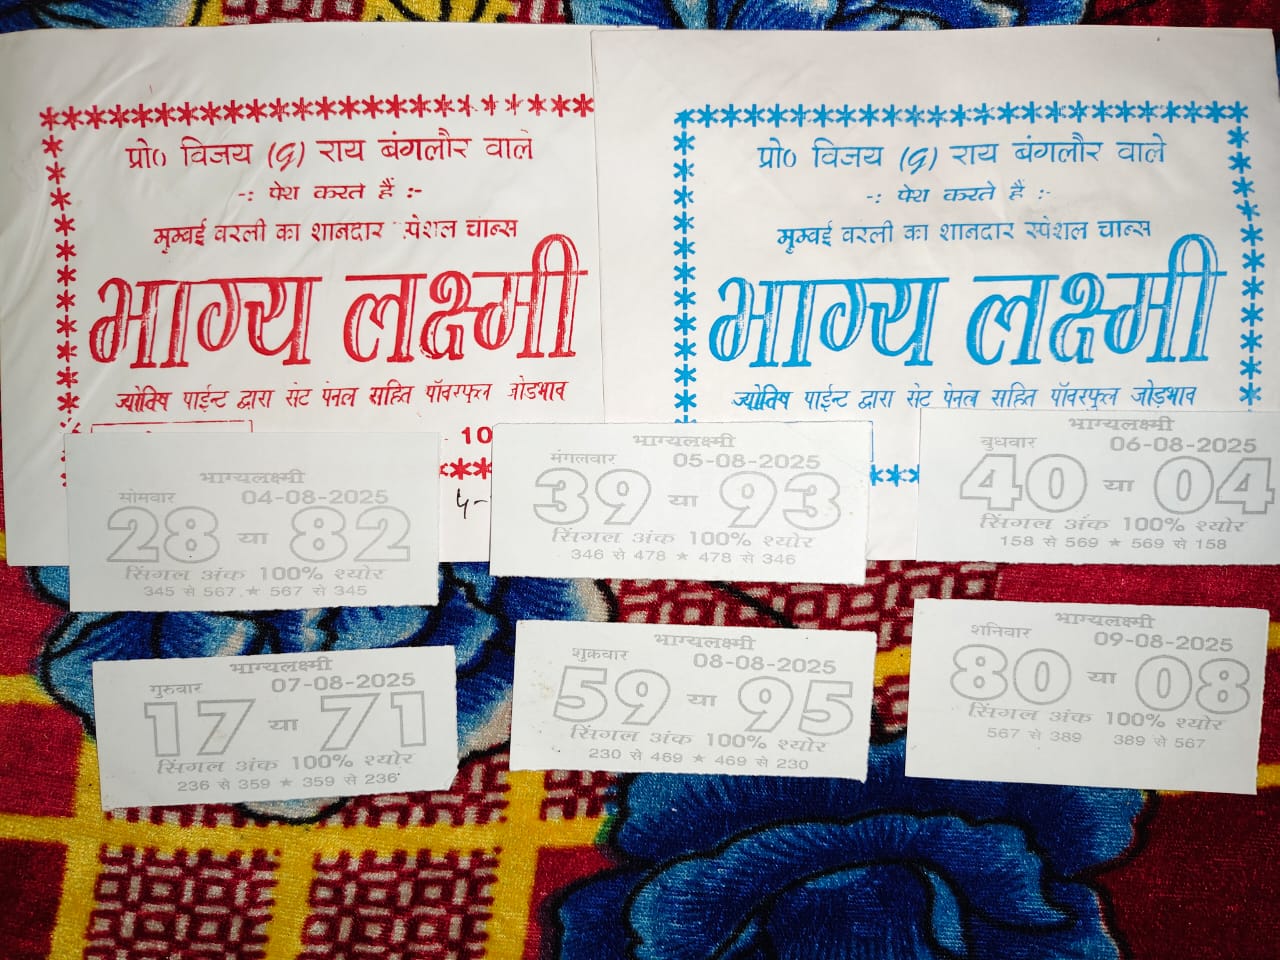 प्रो० विजय (G) राय बंगलौर वाले
-: पेश करते हैं :-
मुम्बई वरली का शानदार स्पेशल चान्स
भाग्य लक्ष्मी
ज्योतिष पाईन्ट द्वारा सेट पेनल सहित पॉवरफुल जोडभाव
10
प्रो० विजय (G) राय बंगलौर वाले
-: पेश करते हैं :-
मुम्बई वरली का शानदार स्पेशल चान्स
भाग्य लक्ष्मी
ज्योतिष पाईन्ट द्वारा सेट पेनल सहित पॉवरफुल जोड़भाव
भाग्यलक्ष्मी
सोमवार 04-08-2025
28 या 82
सिंगल अंक 100% श्योर
345 से 567 ★ 567 से 345
भाग्यलक्ष्मी
मंगलवार 05-08-2025
39 या 93
सिंगल अंक 100% श्योर
346 से 478 ★ 478 से 346
भाग्यलक्ष्मी
बुधवार 06-08-2025
40 या 04
सिंगल अंक 100% श्योर
158 से 569 ★ 569 से 158
भाग्यलक्ष्मी
गुरुवार 07-08-2025
17 या 71
सिंगल अंक 100% श्योर
236 से 359 ★ 359 से 236
भाग्यलक्ष्मी
शुक्रवार 08-08-2025
59 या 95
सिंगल अंक 100% श्योर
230 से 469 ★ 469 से 230
भाग्यलक्ष्मी
शनिवार 09-08-2025
80 या 08
सिंगल अंक 100% श्योर
567 से 389 389 से 567